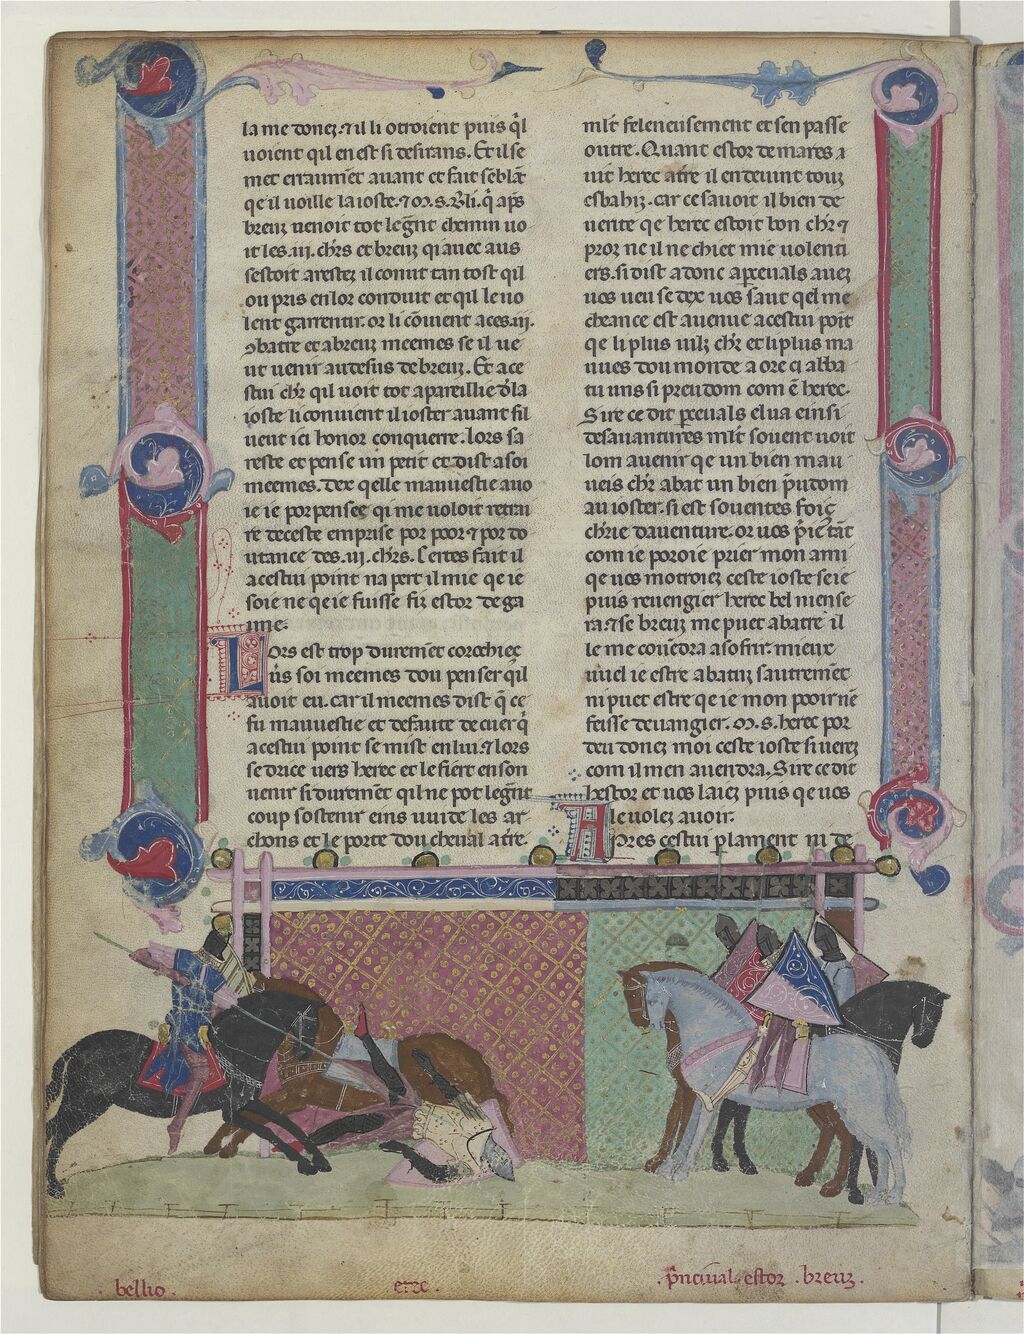 la me donez. ⁊ il li otroient puis q̃l
uoient qil en est si desirans. Et il se
met erraumẽt auant et fait sẽblãt
qe il uoille la ioste. ⁊ m. s. Bli. q̃ ap̃s
breuz uenoit tot le gñt chemin uo
it les .iii. chrs et breuz qi auec aus
sestoit arestez il conut tantost qil
ou pris en lor conduit et qil le uo
lent garrentir. or li cõuient a ces .iii.
ꝯbatre et a breuz meemes se il ue
ut uenir au desus de breuz. Et a ce
stui chr qil uoit tot apareillie d̃ la
ioste li conuient il ioster auant sil
ueut ici honor conquerre. lors sa
reste et pense un petit et dist a soi
meemes. dex qelle mauuestie auo
ie ie por pensee qi me uoloit retrai
re de ceste emprise por poor ⁊ por do
utance des .iii. chrs. Certes fait il
a cestui point na pert il mie qe ie
soie ne qe ie fuisse fiz estor de ga
une.
Lors est trop duremẽt corochiez
u͂s soi meemes dou penser q̃l
auoit eu. car il meemes dist q̃ ce
fu mauuestie et defaute de cuer q̃
a cestui point se mist en lui ⁊ lors
se drice uers herec et le fiert en son
uenir si duremẽt qil ne pot le gñt
coup sostenir eins uuide les ar
chons et le porte dou cheual a tre.
mlt feleneusement et sen passe
outre. Quant estor de mares a
uit herec a tre il en deuint touz
esbahiz. car ce sauoit il bien de
uerite qe herec estoit bon chr ⁊
proz ne il ne chiet mie uolenti
ers. si dist adonc a p̱ceuals auez
uos ueu se dex uos saut qel me
cheance est auenue a cestui poit
qe li plus uilz chr et li plus ma
uues dou monde a ore ci abba
tu uns si preudom com ẽ herec.
Sire ce dit p̱ceuals el ua einsi
desauantures mlt souent uoit
lom auenir qe un bien mau
ueis chr abat un bien p̃udom
au ioster. si est souentes foiz
chr̃ie dauenture. or uos p̃ie tãt
com ie poroie prier mon ami
qe uos motroiez ceste ioste se ie
puis reuengier herec bel men se
ra ⁊ se breuz me puet abatre il
le me couẽdra a sofrir. mieux
uuel ie estre abatuz sautremẽt
ni puet estre qe ie mon pooir nẽ
feisse deuangier. m. s. herec por
deu donez moi ceste ioste si uerez
com il men auendra. Sire ce dit
hestor et uos laiez puis qe uos
le uolez auoir.
Apres cestui p̱lament ni de
bellio .
erec .
. p̃nciual . estor . breuz .